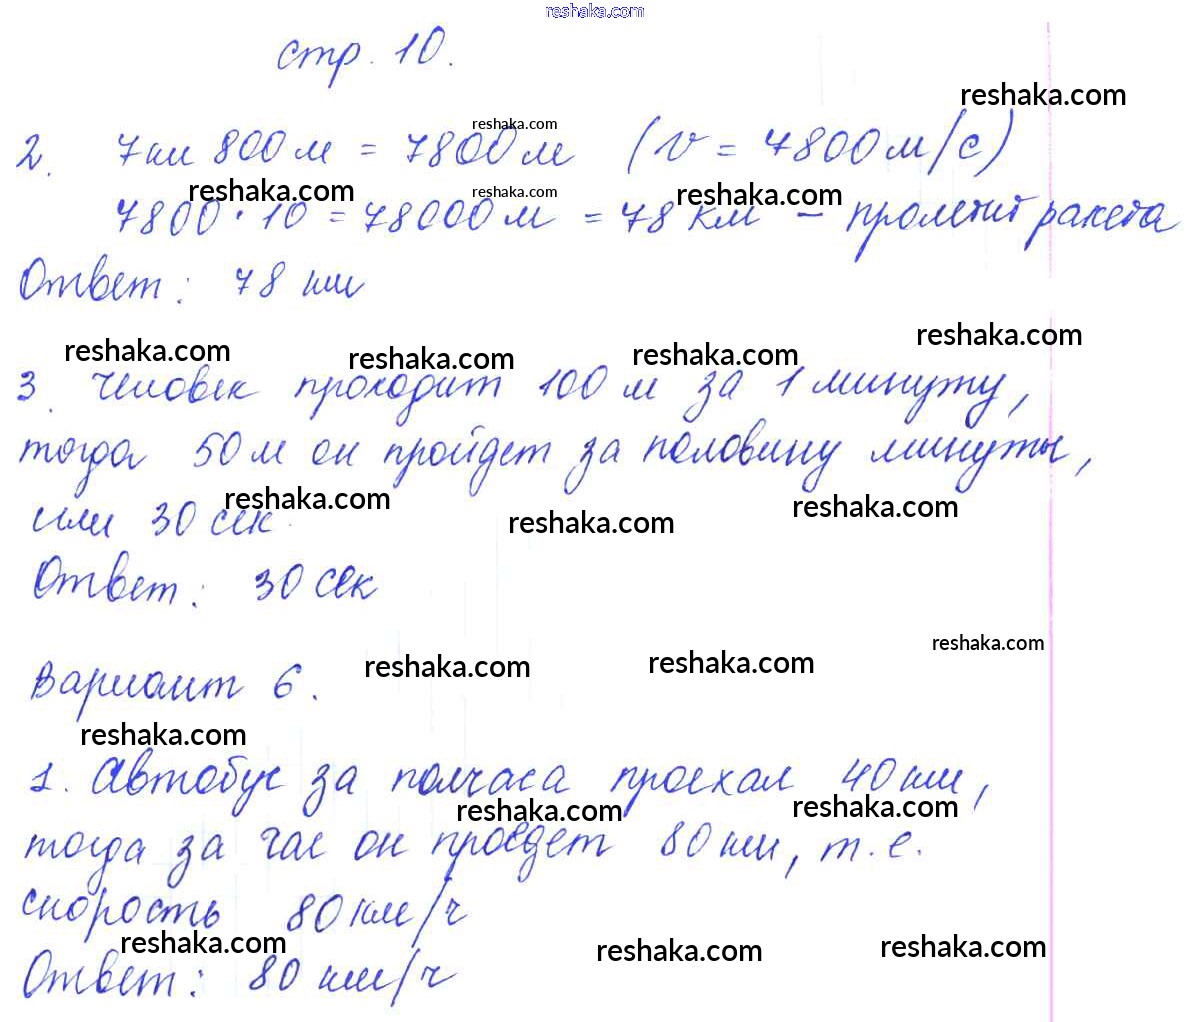 reshaka.com
стр. 10.
reshaka.com
reshaka.com
2. 7км 800м = 7800м (v = 7800м/с)
reshaka.com reshaka.com reshaka.com
7800·10 = 78000м = 78 км – пролетит ракета
Ответ: 78 км
reshaka.com reshaka.com reshaka.com reshaka.com
3. Человек проходит 100м за 1 минуту,
тогда 50м он пройдет за половину минуты,
reshaka.com reshaka.com reshaka.com
или 30 сек.
Ответ: 30 сек
reshaka.com reshaka.com reshaka.com
Вариант 6.
reshaka.com
1. Автобус за полчаса проехал 40км,
reshaka.com reshaka.com
тогда за час он проедет 80км, т.е.
скорость 80км/ч
reshaka.com reshaka.com reshaka.com
Ответ: 80 км/ч